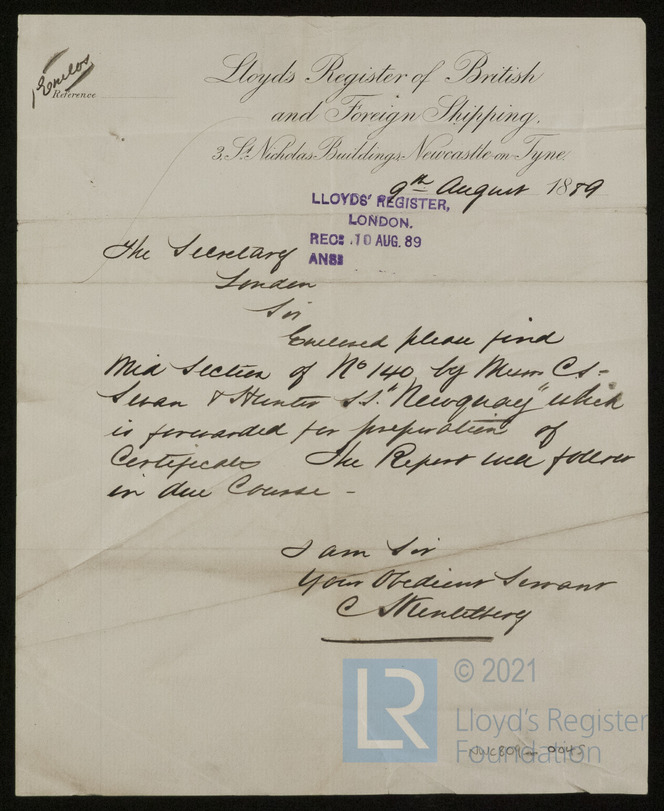 Enclos
Reference
Lloyds Register of British
and Foreign Shipping.
3, St. Nicholas Buildings, Newcastle-on-Tyne.
9th August 1889
LLOYDS' REGISTER,
LONDON.
REC: 10 AUG. 89
ANS:
The Secretary
London
Sir
Enclosed please find
Mid Section of No 140 by Messrs CS-
Swan & Hunter S.S. "Newquay" which
is forwarded for preparation of
Certificates The Report will follow
in due Course -
I am Sir
Your Obedient Servant
C
LR
© 2021
Lloyd's Register
Foundation
NWC804 - 0045